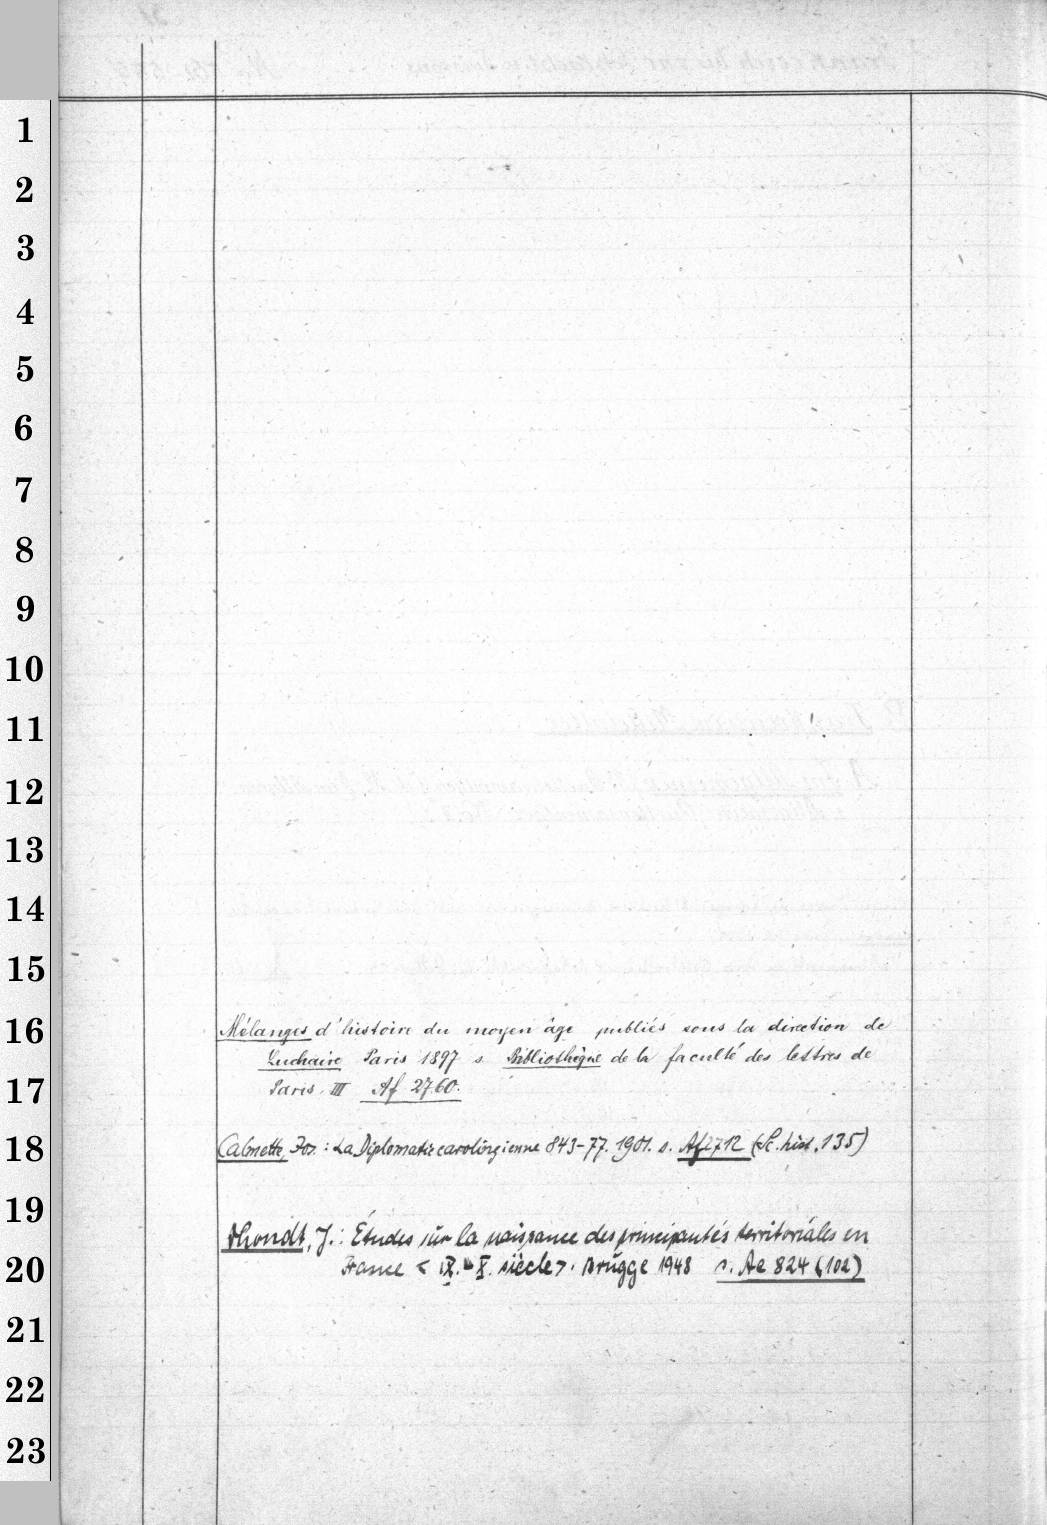 1
2
3
4
5
6
7
8
9
10
11
12
13
14
15
16
Mélanges d'histoire du moyen âge publiés sous la direction de
Luchaire Paris 1897 s. Bibliothèque de la faculté des lettres de
17
Paris. III Af 2760.
18
Calmette, Jos.: La Diplomatie carolingienne 843-77. 1901. s. Af 2712 (Sc. hist. 135)
19
Dhondt, J.: Études sur la naissance des principautés territoriales en
20
France < IX.-X. siècle>. Brügge 1948 s. Ae 824 (102)
21
22
23